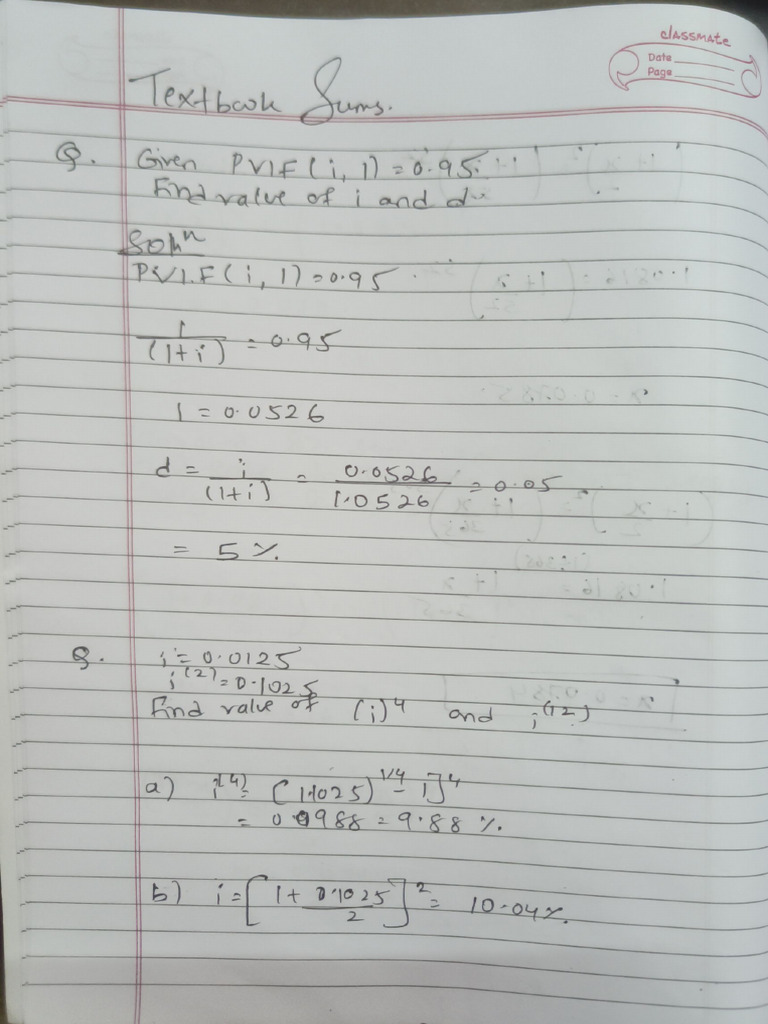 classmate
Date
Page
Textbook Sums.
Q. Given PVIF(i, 1) = 0.95.
Find value of i and d
Soln
PVIF(i, 1) = 0.95
1/(1+i) = 0.95
i = 0.0526
d = i/(1+i) = 0.0526/1.0526 = 0.05
= 5%
Q. i = 0.0125
i^(2) = 0.1025
Find value of (i)^4 and i^(12)
a) i^(4) = [(1.1025)^1/4 - 1]^4
= 0.0988 = 9.88 %.
b) i = [1 + 0.1025/2]^2 = 10.04%.